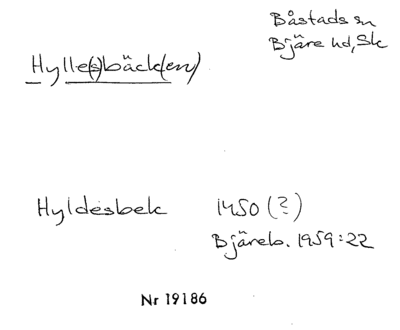 Båstads sn
Bjäre hd, Sk
Hylle(s)bäck(en)
Hyldesbek 1450 (?)
Bjäreb. 1959:22
Nr 19186